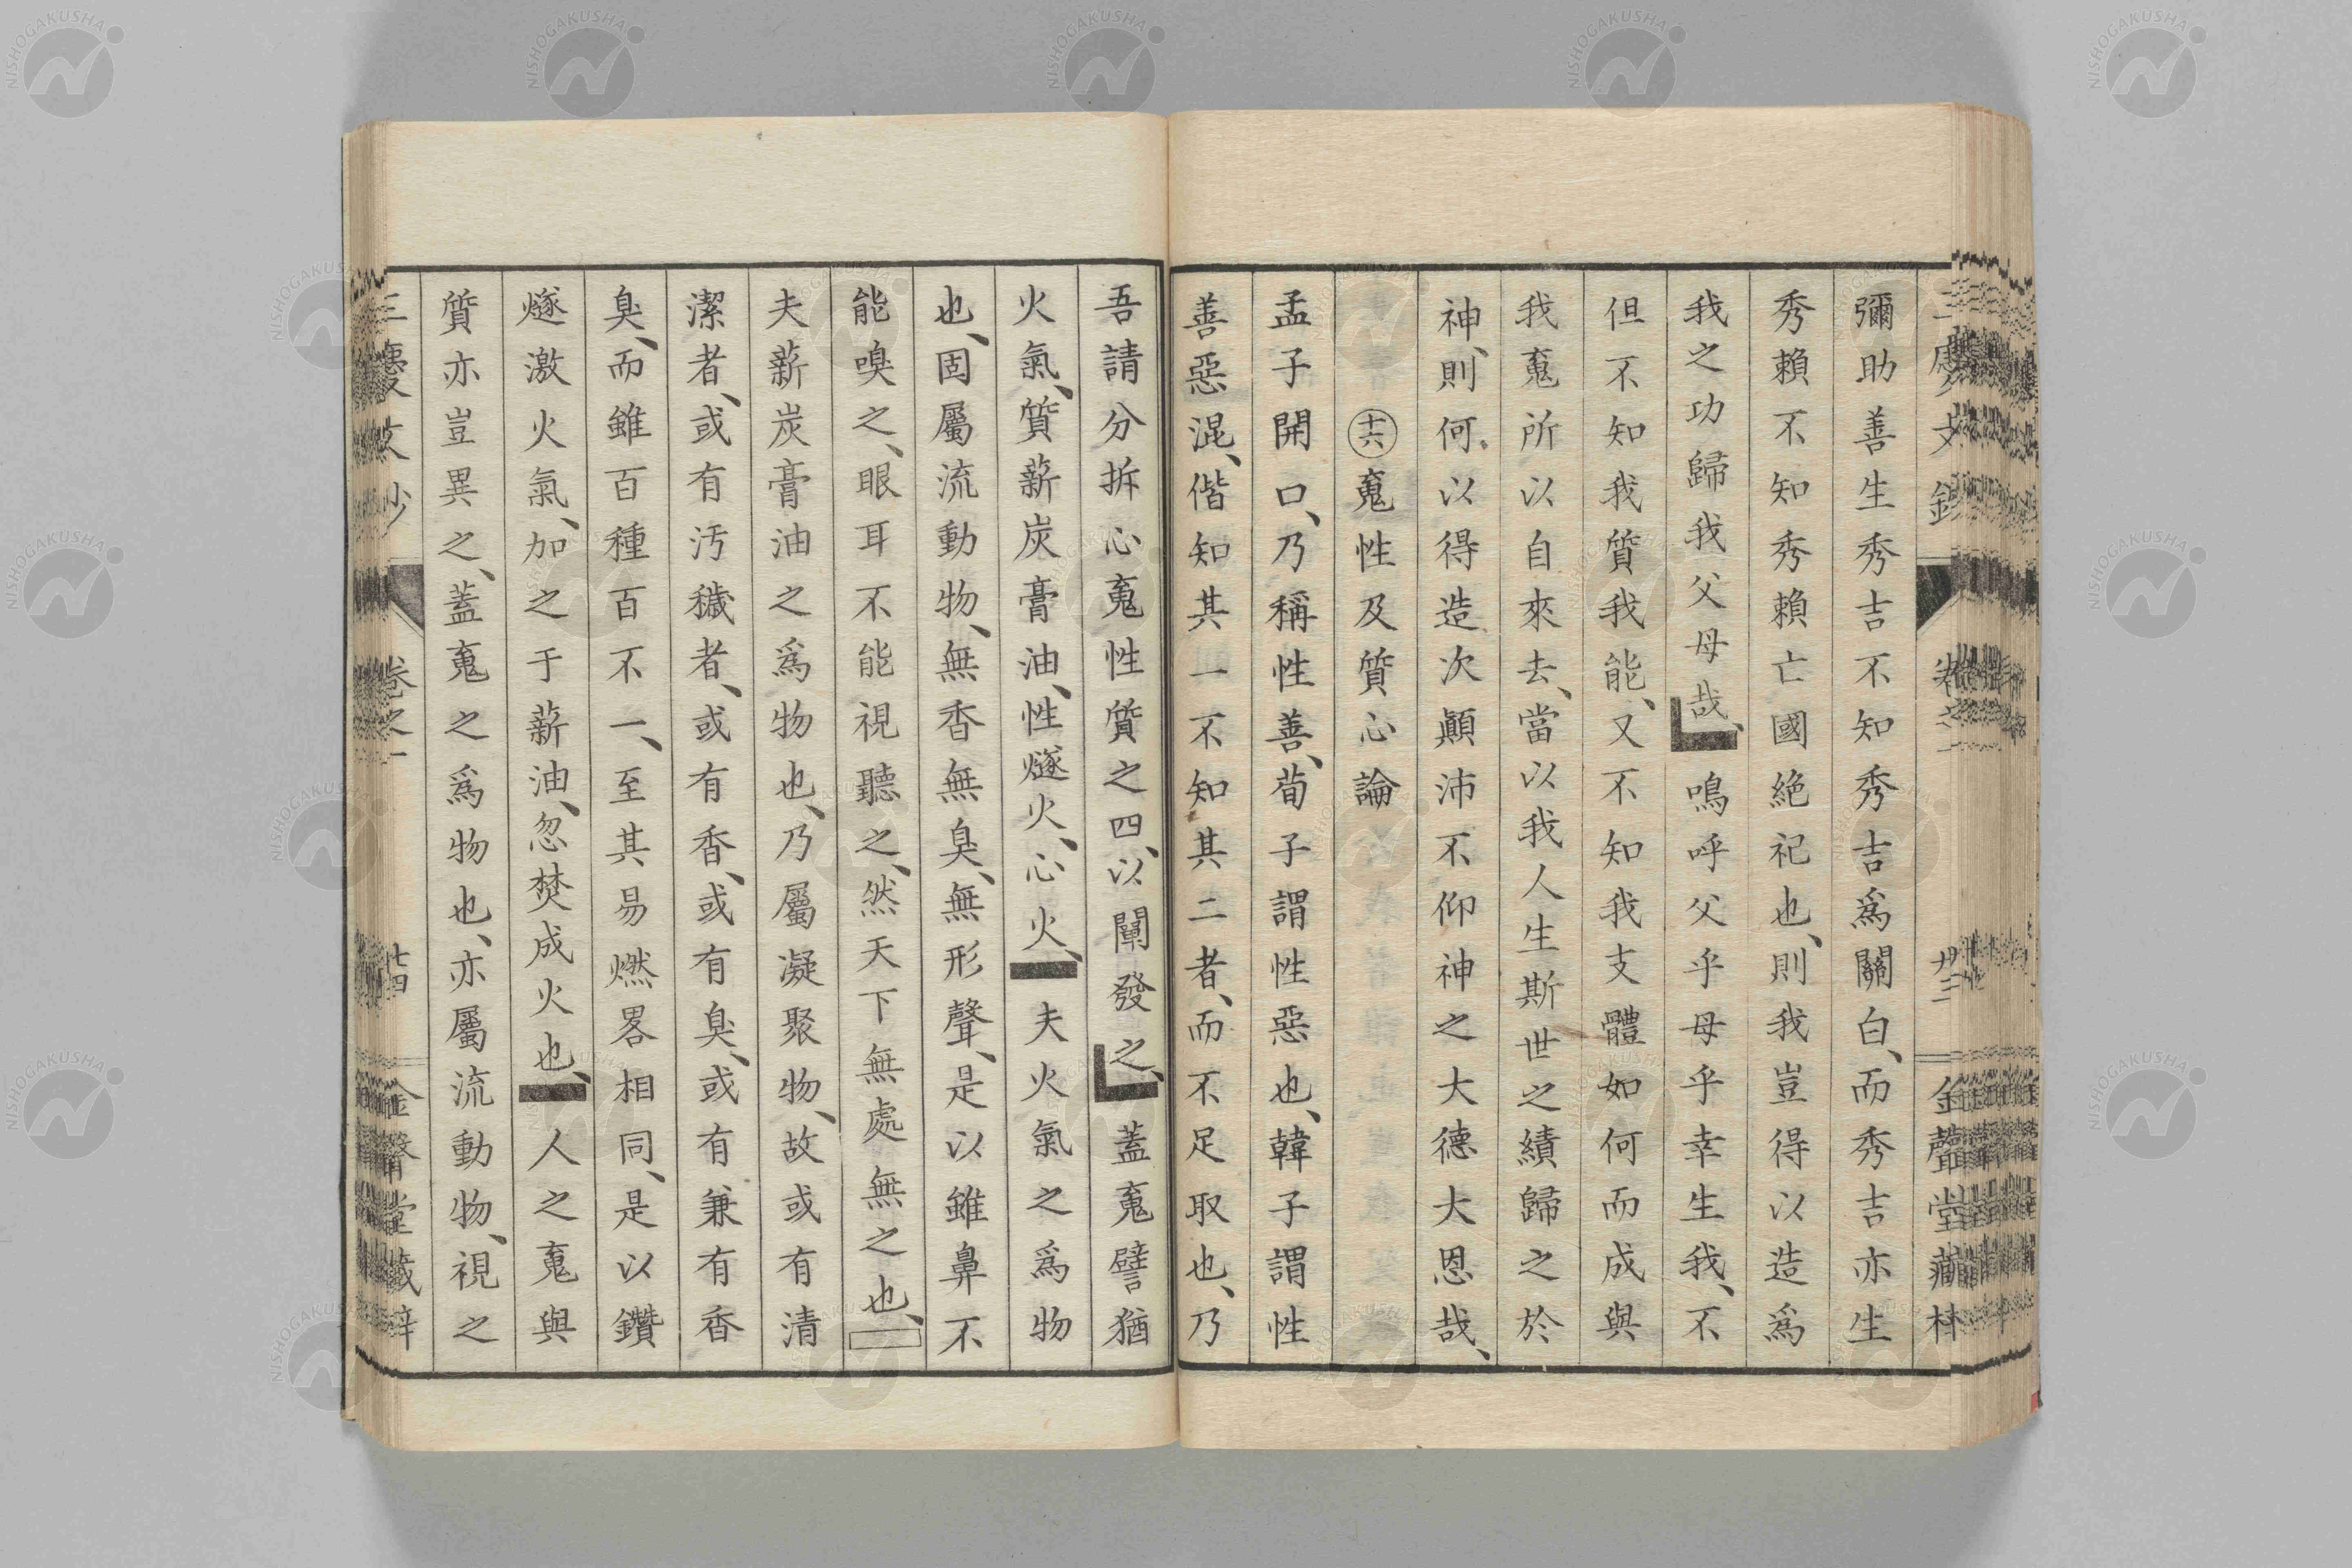 彌助善生秀吉不知秀吉爲關白、而秀吉亦生
秀賴不知秀賴亡國絶祀也、則我豈得以造爲
我之功歸我父母哉、鳴呼父乎母乎幸生我、不
但不知我質我能、又不知我支體如何而成與
我䰟所以自來去、當以我人生斯世之績歸之於
神、則何以得造次顚沛不仰神之大德大恩哉、
十六 䰟性及質心論
孟子開口、乃稱性善、荀子謂性惡也、韓子謂性
善惡混、偕知其一不知其二者、而不足取也、乃
吾請分拆心䰟性質之四、以闡發之、蓋䰟譬猶
火氣、質薪炭膏油、性燧火、心火、夫火氣之爲物
也、固屬流動物、無香無臭、無形聲、是以雖鼻不
能嗅之、眼耳不能視聽之、然天下無處無之也、
夫薪炭膏油之爲物也、乃屬凝聚物、故或有清
潔者、或有汚穢者、或有香、或有臭、或有兼有香
臭、而雖百種百不一、至其易燃畧相同、是以鑽
燧激火氣、加之于薪油、忽焚成火也、人之䰟與
質亦豈異之、蓋䰟之爲物也、亦屬流動物、視之
卷之一
廿四
NISHOGAKUSHA